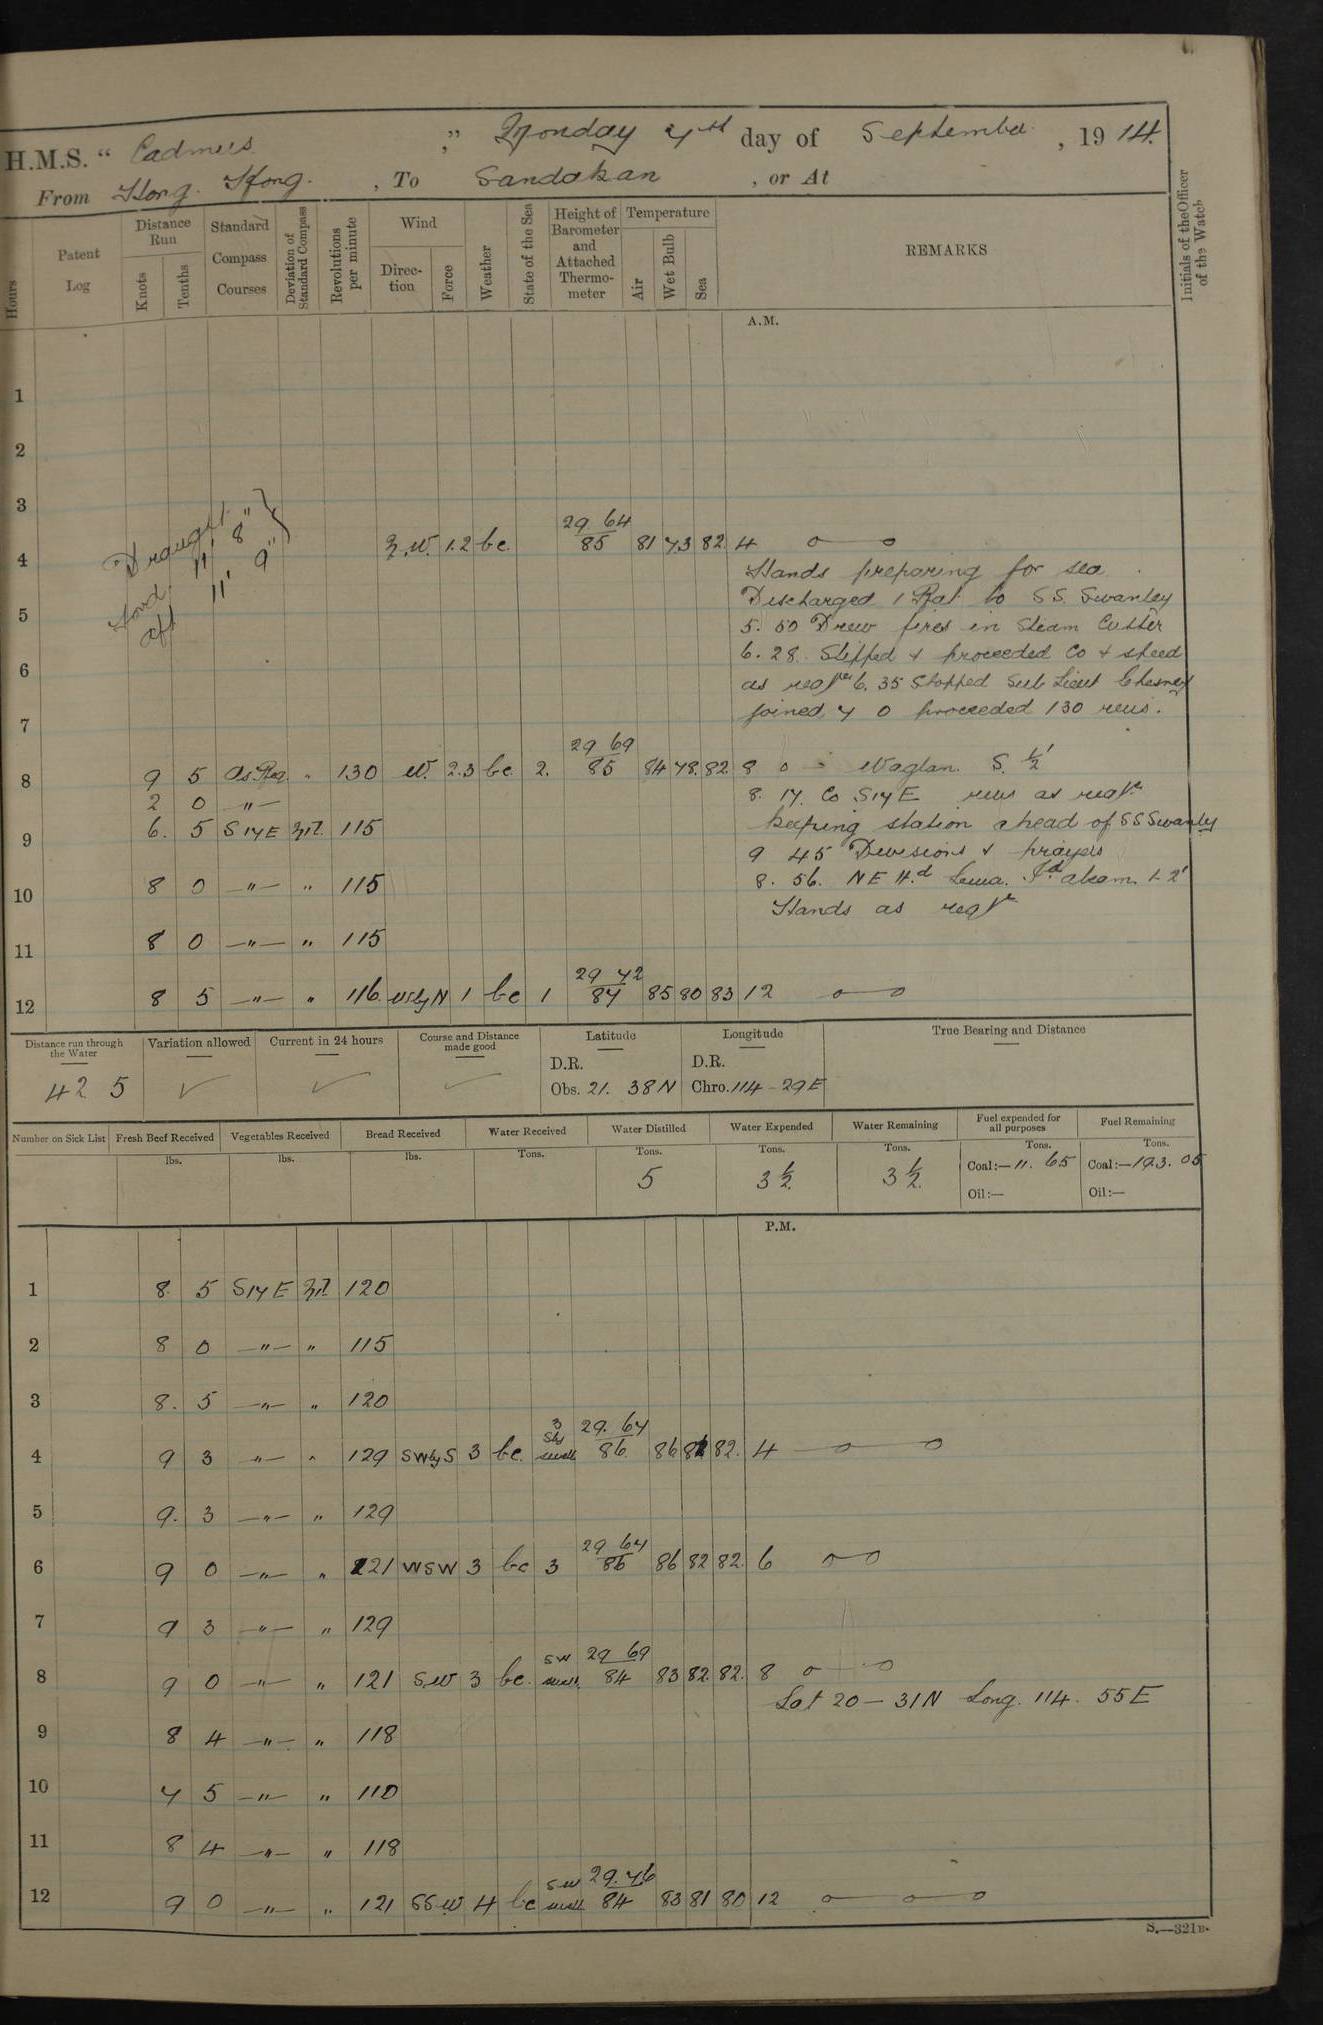 H.M.S. “ Cadmus ,” Monday 7th day of September , 1914.
From Hong Kong. , To Sandakan , or At
Hours
Patent Log
Distance Run
Knots
Tenths
Standard Compass Courses
Deviation of Standard Compass
Revolutions per minute
Wind
Direc-tion
Force
Weather
State of the Sea
Height of Barometer and Attached Thermo-meter
Temperature
Air
Wet Bulb
Sea
REMARKS
Initials of the Officer of the Watch
A.M.
1
2
3
Draught
Ford 11' 8"
aft 11' 9"
4 N.W. 1.2 bc. 29.64 85 81 73 82 4
Hands preparing for sea.
5 Discharged 1 Rat. to SS. Swanley
5.50 Drew fires in Steam Cutter
6 6.28. Slipped & proceeded Co & speed
as reqte 6.35 Stopped Sub Lieut Chesney
7 joined 7 0 proceeded 130 revs.
8 9 5 As Req. " 130 W. 2.3 bc 2. 29 69 85 84 78. 82 8 0 Waglan. S. ½'
2 0 —"— 8. 17. Co S17E revs as reqte
9 6. 5 S17E Nil 115 keeping station ahead of SS Swanley
9 45 Divisions & prayers
10 8 0 —"— " 115 8. 56. NE Hd Lema. Id abeam 1.2'
Hands as reqte
11 8 0 —"— " 115
12 8 5 —"— " 116 WbyN 1 bc 1 29 72 84 85 80 83 12
Distance run through the Water
42 5
Variation allowed
Current in 24 hours
Course and Distance made good
Latitude
D.R.
Obs. 21. 38N
Longitude
D.R.
Chro. 114-29E
True Bearing and Distance
Number on Sick List
Fresh Beef Received
lbs.
Vegetables Received
lbs.
Bread Received
lbs.
Water Received
Tons.
Water Distilled
Tons.
5
Water Expended
Tons.
3½
Water Remaining
Tons.
3½
Fuel expended for all purposes
Tons.
Coal:—11. 65
Oil:—
Fuel Remaining
Tons.
Coal:—193. 05
Oil:—
P.M.
1 8. 5 S17E Nil 120
2 8 0 —"— " 115
3 8. 5 —"— " 120
4 9 3 —"— " 129 SWbyS 3 bc. 3 Sly swell 29. 64 86 86 82. 4
5 9. 3 —"— " 129
6 9 0 —"— " 121 WSW 3 bc 3 29 64 86 86 82 82. 6
7 9 3 —"— " 129
8 9 0 —"— " 121 S.W 3 bc. SW swell 29 69 84 83 82. 82. 8
Lat 20 — 31N Long. 114. 55E
9 8 4 —"— " 118
10 7 5 —"— " 110
11 8 4 —"— " 118
12 9 0 —"— " 121 SSW 4 bc SW swell 29.76 84 83 81 80 12
S.—321B.